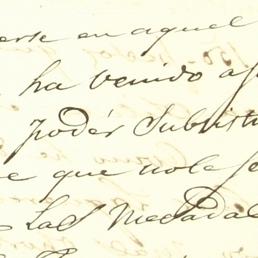 erse en aquel
ha venido a
Podér Subsist
e que no le se
Las Mesadas